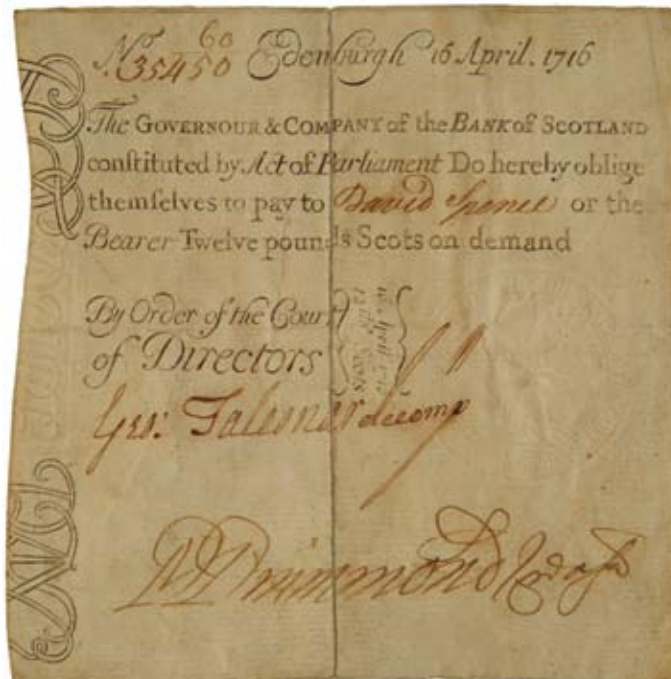 No 60/35450 Edenburgh 16 April. 1716
The GOVERNOUR & COMPANY of the BANK of SCOTLAND
constituted by Act of Parliament Do hereby oblige
themſelves to pay to David Spence or the
Bearer Twelve pounds Scots on demand
By Order of the Court
of Directors
Geo: Falconar decomp
Drummond